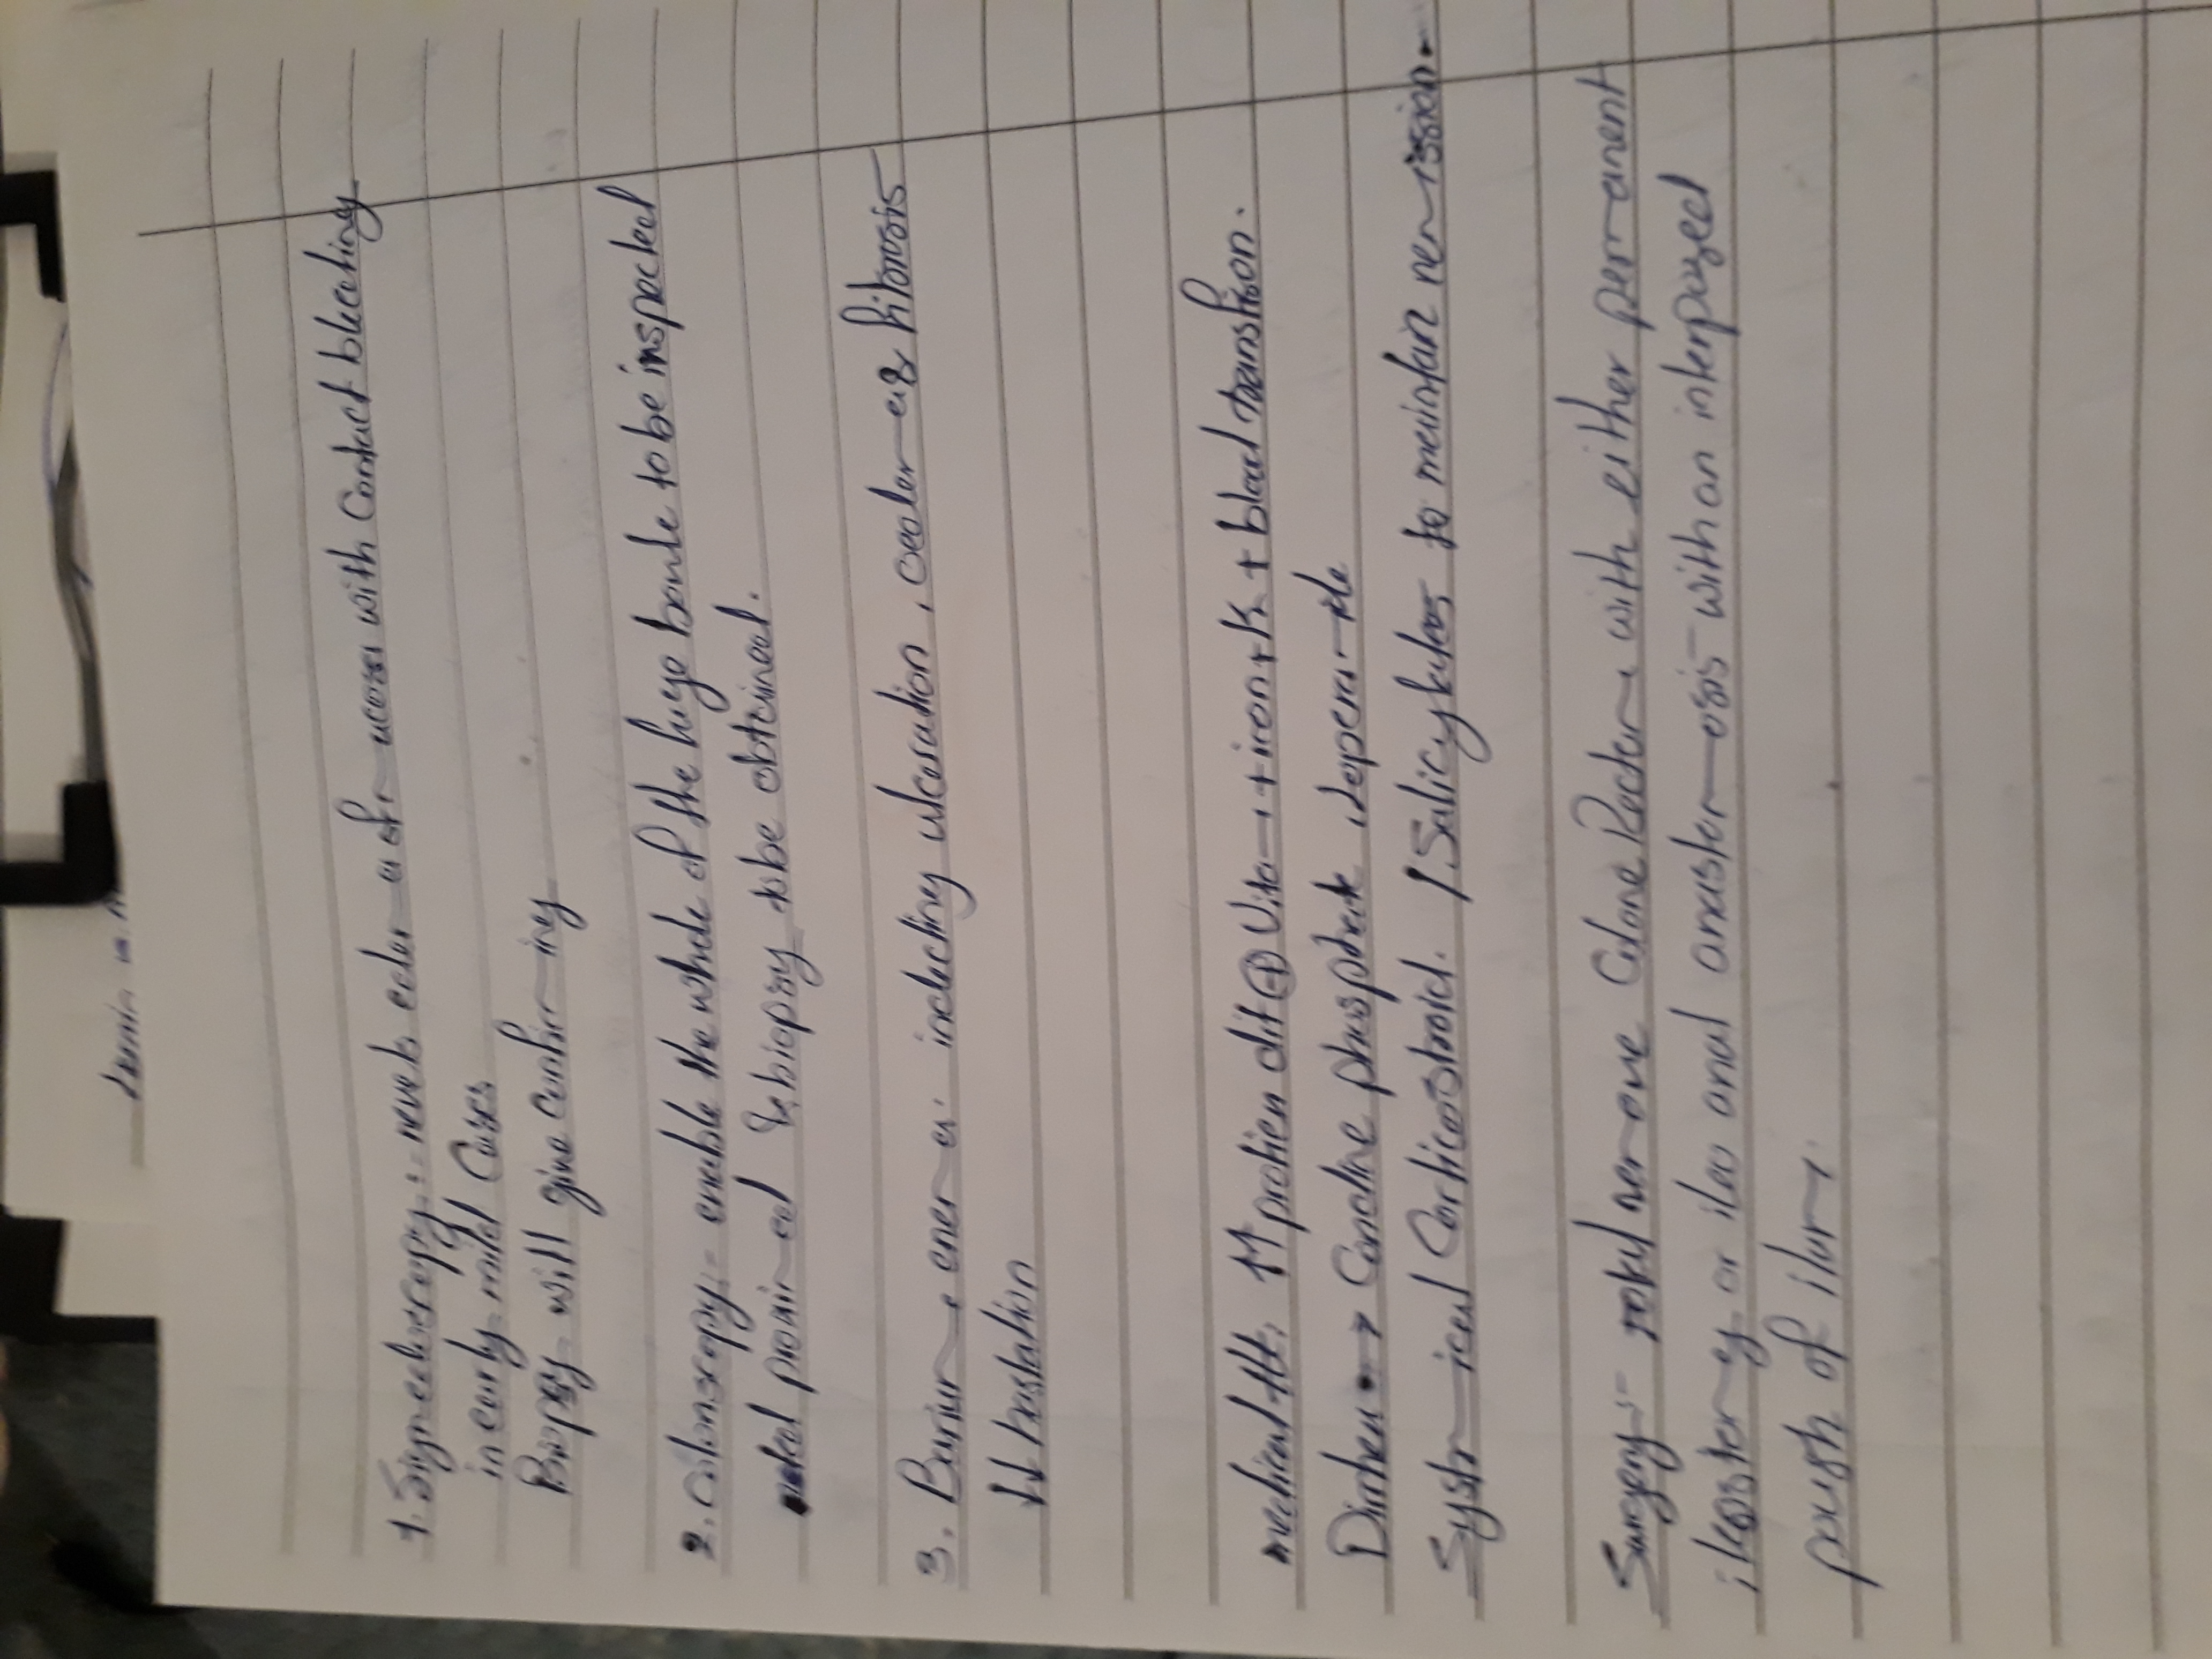 1. Sigmedoscopy:- revels edema of mucosa with Contact bleeding
in early mild Cases
Biopsy will give confirming
2. Colonscopy:- enable the whole of the huge bowle to be inspected
and biopsy to be obtained.
3. Barium enema: including ulceration, oedema & fibrosis
haustation
medical ttt: ↑↑ protien dit ⊕ Vitam + iron + K + blood transfusion.
Dirrhea → Condine phosphate, lopera mide
Systmical Corticostroid. / Salicylates to maintan remission
Surgery:- total remove Colone Rectum with either permanent
ileostomy or ileo anal anastomosis with an interpused
poush of ilum.